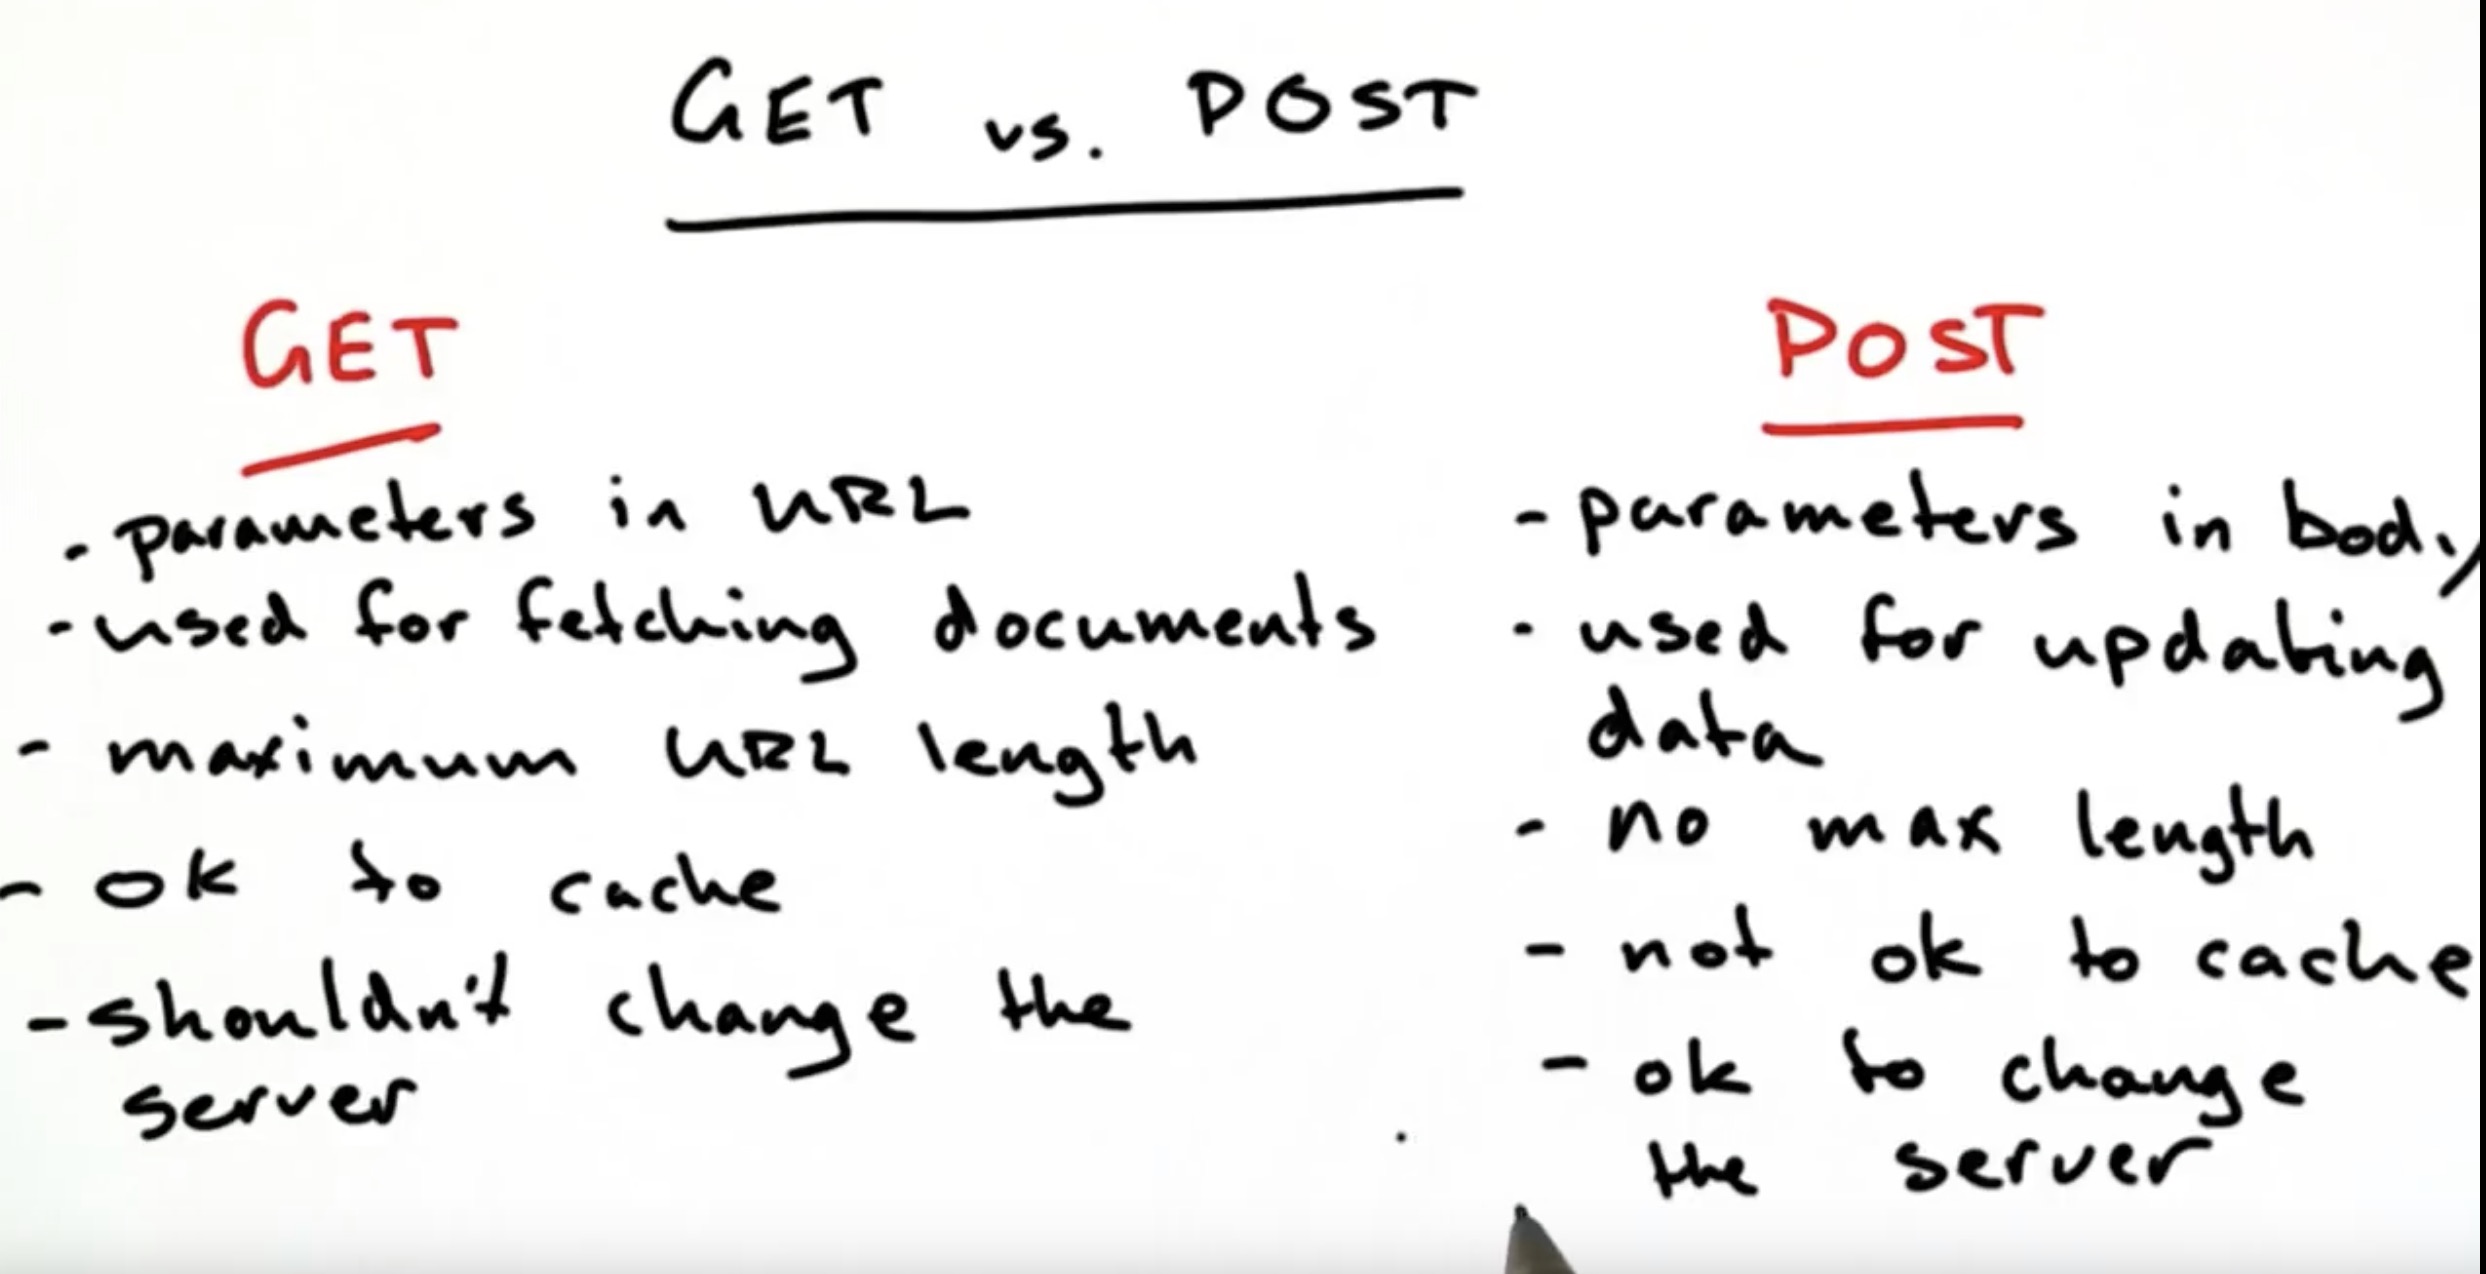 GET vs. POST
GET
- parameters in URL
- used for fetching documents
- maximum URL length
- ok to cache
- shouldn't change the
server
POST
- parameters in body
- used for updating
data
- no max length
- not ok to cache
- ok to change
the server